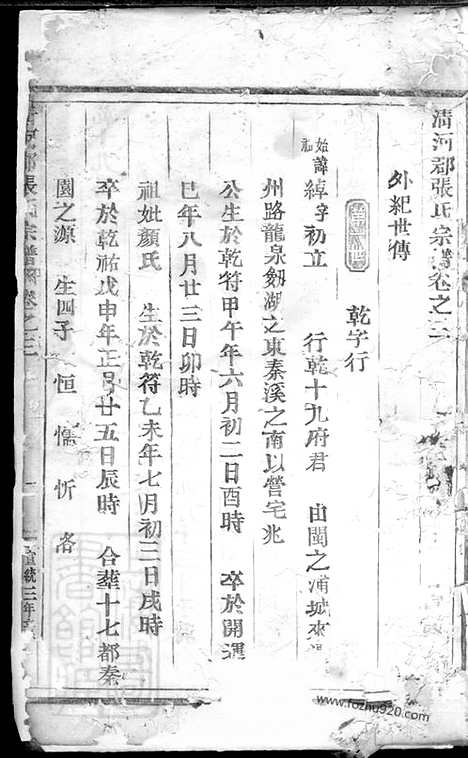 清河郡張氏宗譜卷之二
外紀世傳
乾字行
始祖諱綽字初立　行乾十九府君　由閩之浦城來
州路龍泉劔湖之東秦溪之南以營宅兆
公生於乾符甲午年六月初二日酉時　卒於開運
巳年八月廿三日卯時
祖妣顏氏　生於乾符乙未年七月初三日戌時
卒於乾祐戊申年正月廿五日辰時　合葬十七都秦
園之源　生四子　恒　忻　洛
郡張氏宗譜　卷之二　宣統三年
www.fozhu920.com